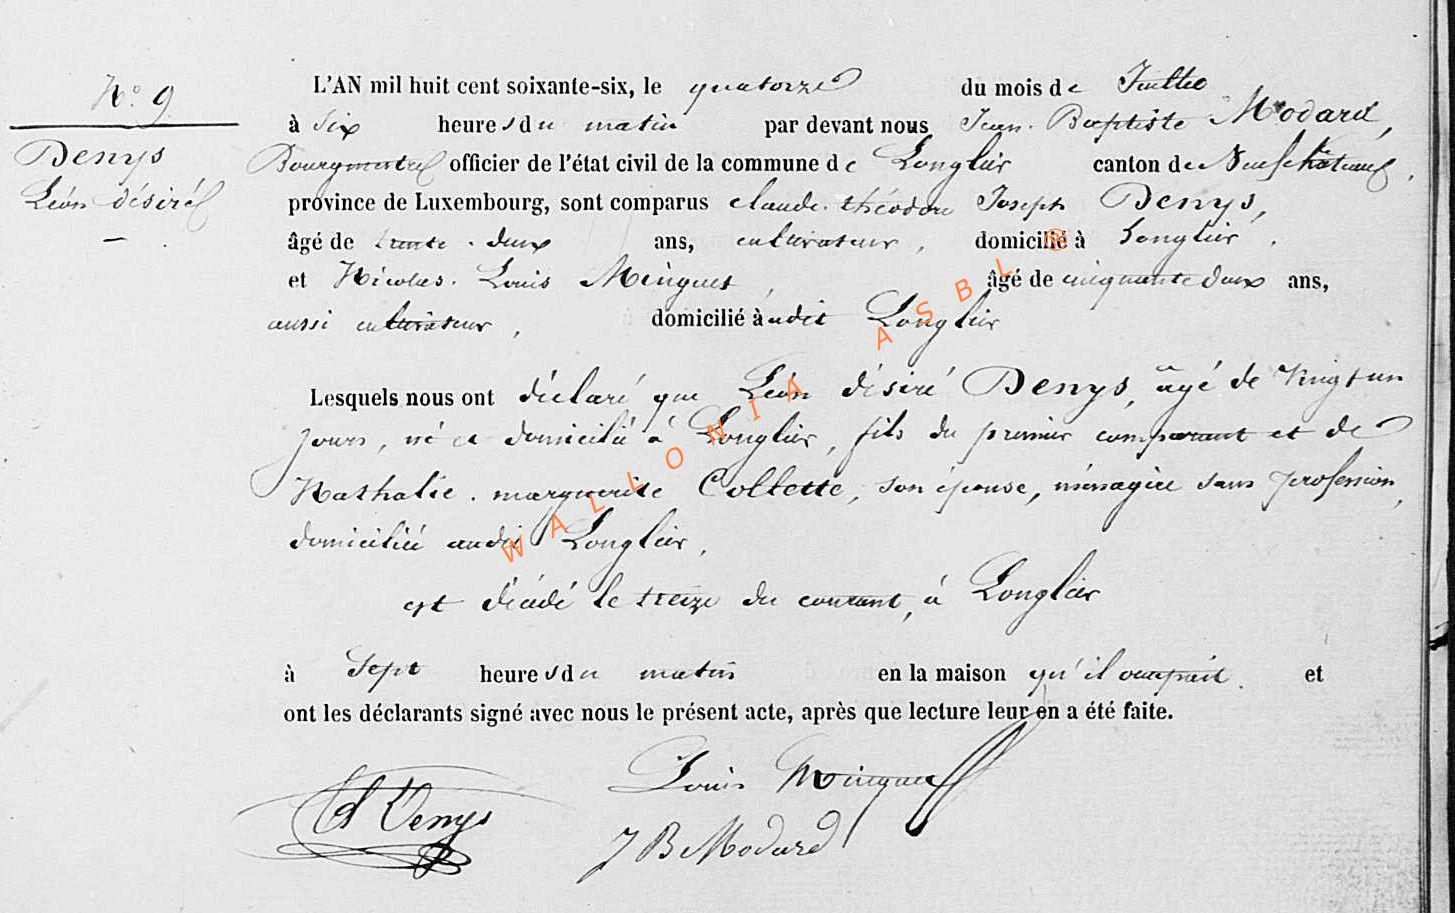 N° 9
Denys
Léon désiré
L'AN mil huit cent soixante-six, le quatorze du mois de Juillet
à six heures du matin par devant nous Jean-Baptiste Modard,
Bourgmestre officier de l'état civil de la commune de Longlier canton de Neufchâteau,
province de Luxembourg, sont comparus claude-théodore Joseph Denys,
âgé de trente-deux ans, cultivateur, domicilié à Longlier.
et Nicolas-Louis Minguet, âgé de cinquante deux ans,
aussi cultivateur, domicilié audit Longlier
Lesquels nous ont déclaré que Léon désiré Denys, âgé de vingt un
jours, né et domicilié à Longlier, fils du premier comparant et de
Nathalie-marguerite Collette, son épouse, ménagère sans profession,
domiciliée audit Longlier,
est décédé le treize du courant, à Longlier
à sept heures du matin en la maison qu'il occupait. et
ont les déclarants signé avec nous le présent acte, après que lecture leur en a été faite.
Denys
Louis Minguet
J B Modard
WALLONIA ASBL ®